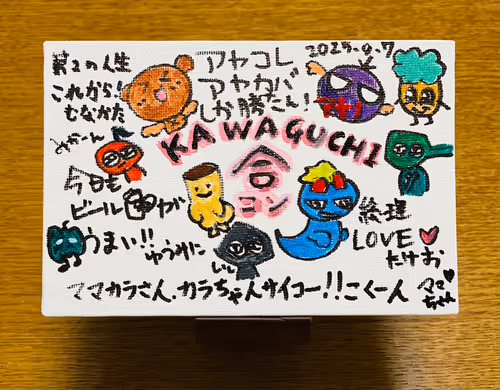 第2の人生
これから!
むなかた
アヤコレ
アヤカバ
しか勝たん!
2025-9-7
アヤナ
みかーん
KAWAGUCHI
合
ヨン
今日も
ビール が
うまい!!
ゆうみに
いい
絵理
LOVE
たけお
ママカラさん、カラちゃんサイコー!!こくーん
ママ
ちゃん